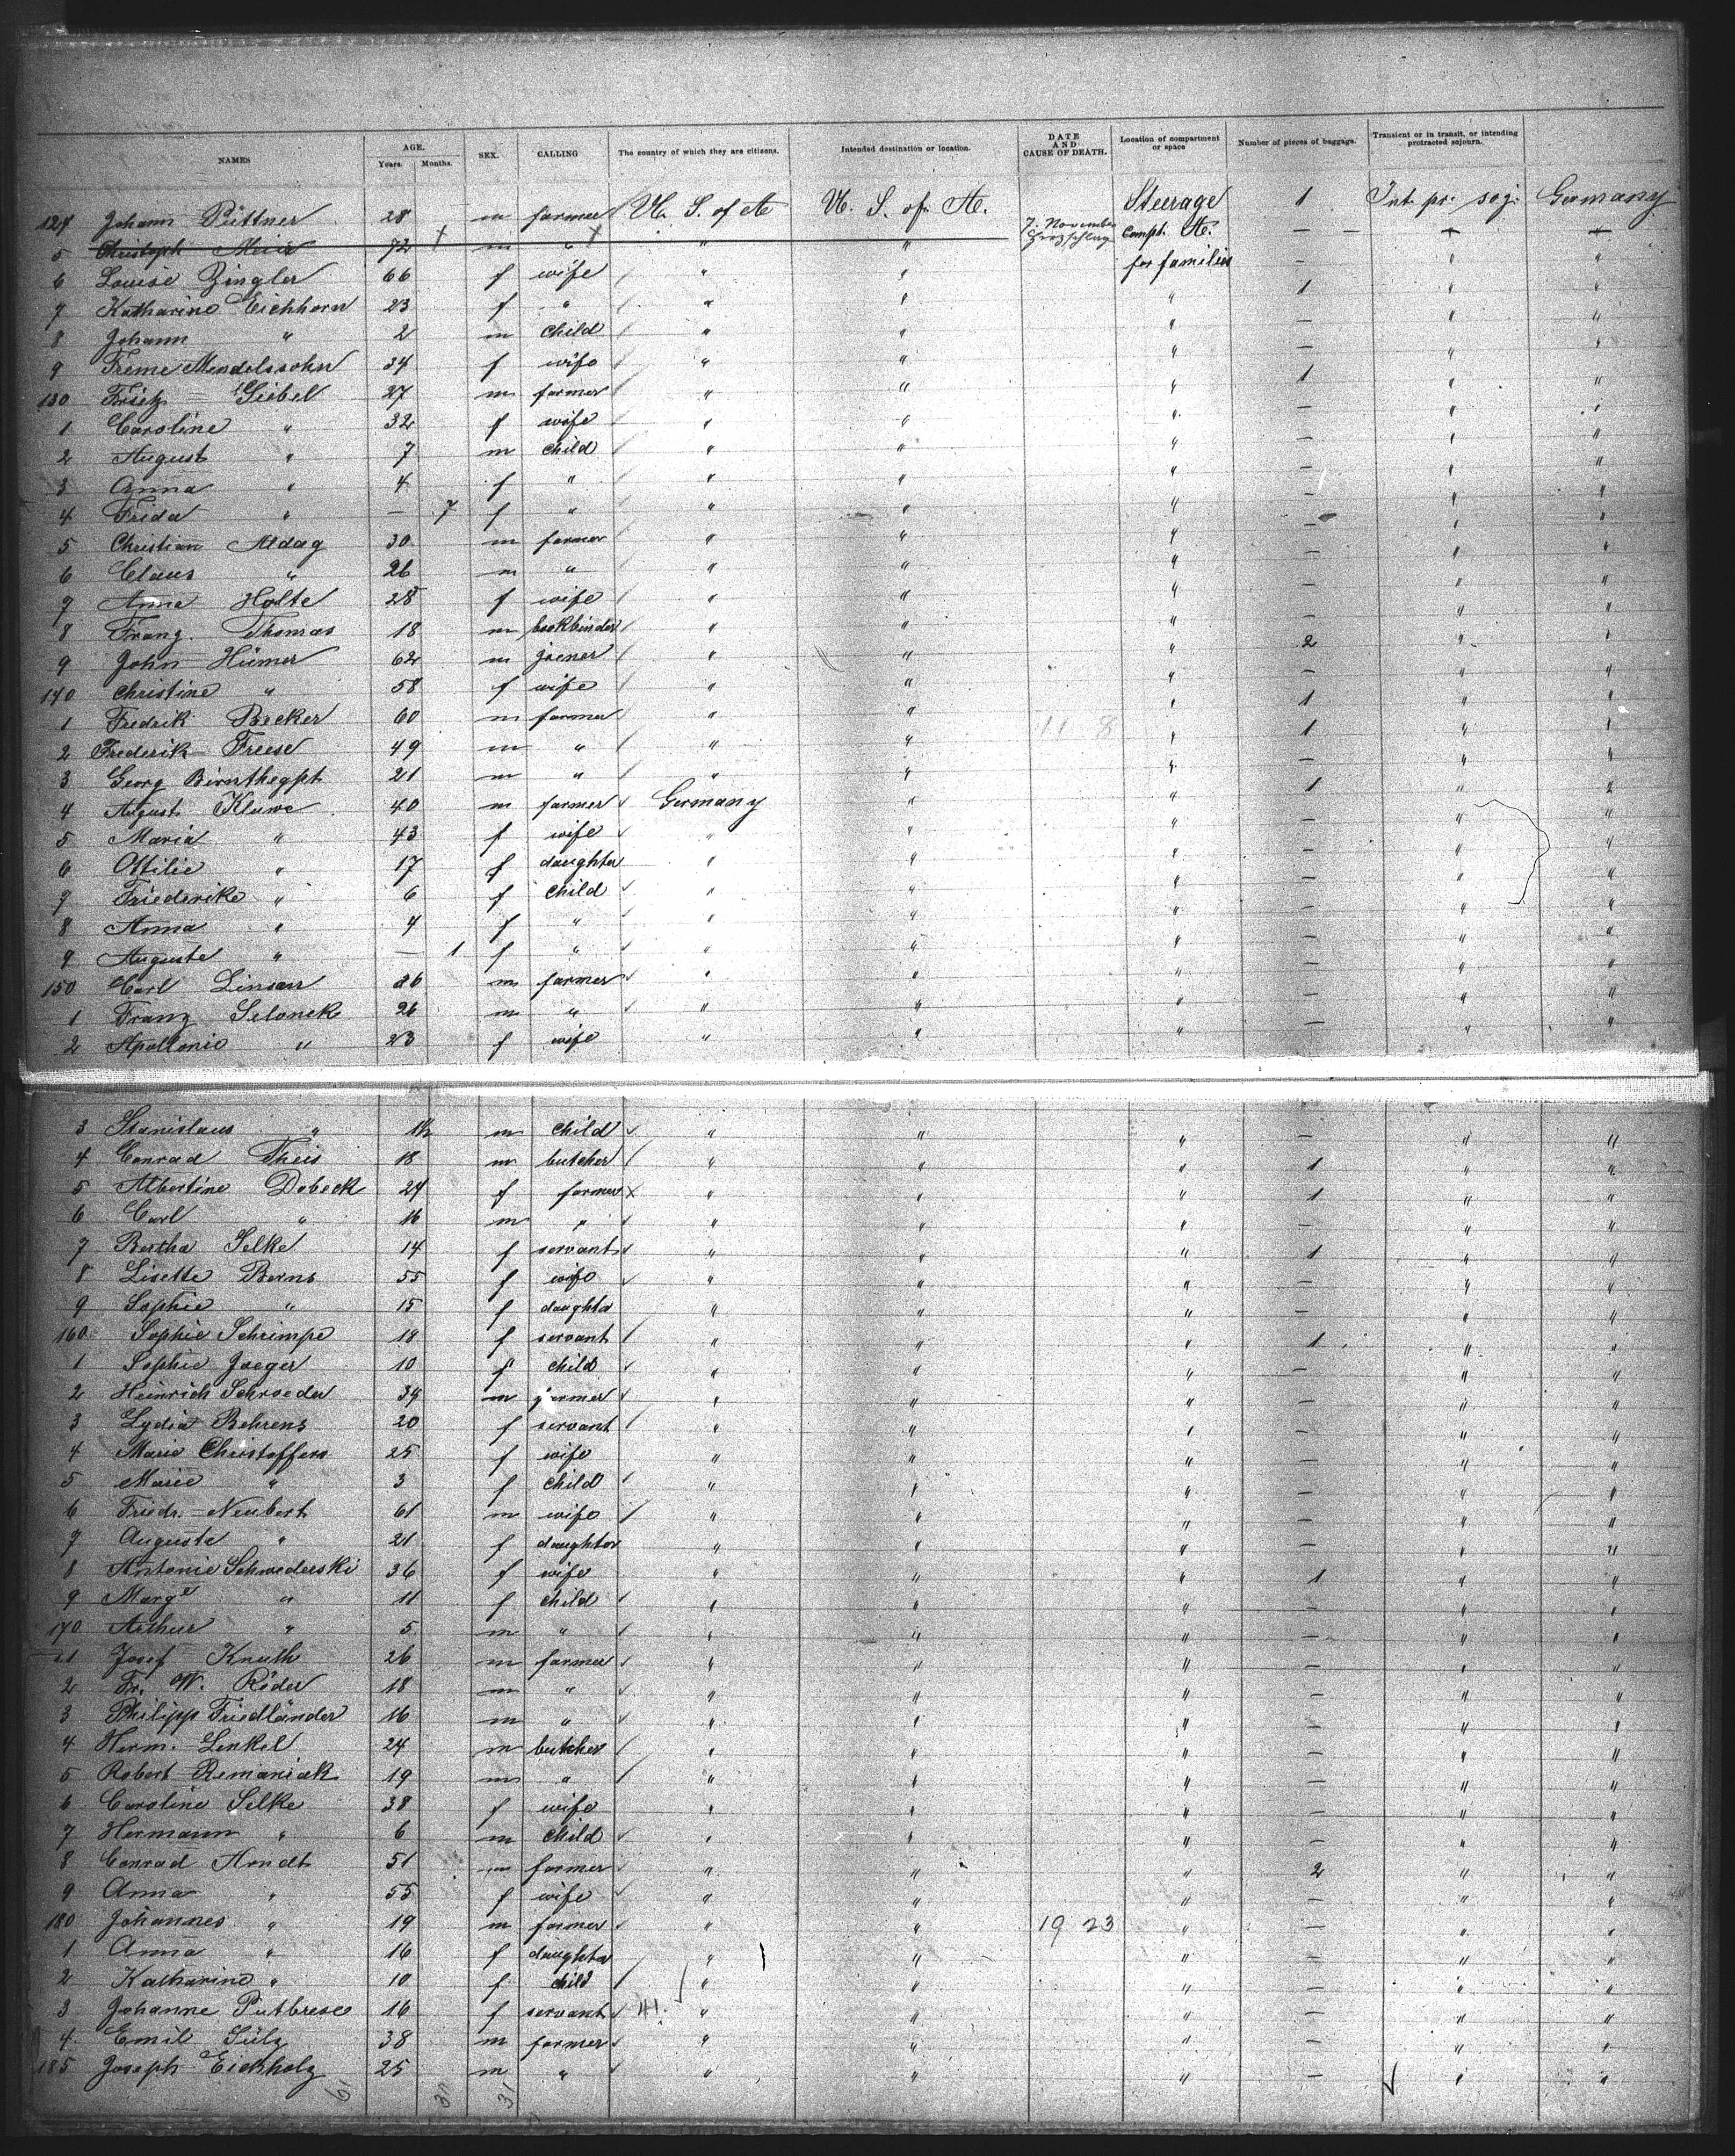 NAMES AGE. Years. Months. SEX. CALLING The country of which they are citizens. Intended destination or location. DATE AND CAUSE OF DEATH. Location of compartment or space Number of pieces of baggage. Transient or in transit, or intending protracted sojourn.
124 Johann Püttner 28 m farmer U. S. of A U. S. of A. Steerage 1 Int. pr. soj. Germany
5 Christoph 72 m " " " 7. November Herzschlag Compt. A. —
6 Louise Zingler 66 f wife " " for families — " "
7 Katharine Eichhorn 23 f " " " " 1 " "
8 Johann " 2 m child " " " — " "
9 Freme Mendelssohn 34 f wife " " " — " "
130 Fritz Giebel 27 m farmer " " " 1 " "
1 Caroline " 32 f wife " " " — " "
2 August " 7 m child " " " — " "
3 Anna " 4 f " " " " — " "
4 Frida " — 7 f " " " " — " "
5 Christian Aldag 30 m farmer " " " — " "
6 Claus " 26 m " " " " — " "
7 Anna Holte 28 f wife " " " — " "
8 Franz Thomas 18 m bookbinder " " " — " "
9 John Hümer 62 m joener " " " 2 " "
140 Christine " 58 f wife " " " — " "
1 Fredrik Becker 60 m farmer " " " 1 " "
2 Frederik Freese 49 m " " " 11 8 " 1 " "
3 Georg 21 m " " " " — " "
4 August Kluwe 40 m farmer Germany " " 1 " "
5 Maria " 43 f wife " " " — " "
6 Ottilie " 17 f daughter " " " — " "
7 Friederike " 6 f child " " " — " "
8 Anna " 4 f " " " " — " "
9 Auguste " — 1 f " " " " — " "
150 Carl Linsan 26 m farmer " " " — " "
1 Franz Selonek 26 m " " " " — " "
2 Apollonie " 23 f wife " " " — " "
3 Stanislaus " 1½ m child " " " — " "
4 Conrad Theis 18 m butcher " " " 1 " "
5 Albertine Dobeck 24 f farmer " " " 1 " "
6 Carl " 16 m " " " " — " "
7 Bertha Selke 14 f servant " " " 1 " "
8 Lisette Berns 55 f wife " " " — " "
9 Sophie " 15 f daughter " " " — " "
160 Sophie Schrimpe 18 f servant " " " 1 " "
1 Sophie Jaeger 10 f child " " " — " "
2 Heinrich Schroeder 39 m farmer " " " — " "
3 Lydia Behrens 20 f servant " " " — " "
4 Marie Christoffers 25 f wife " " " — " "
5 Marie " 3 f child " " " — " "
6 Friedr. Neubert 61 m wife " " " — " "
7 Auguste " 21 f daughter " " " — " "
8 Antonie Schwederski 36 f wife " " " 1 " "
9 Marge " 11 f child " " " — " "
170 Arthur " 5 m " " " " — " "
1 Josef Knuth 26 m farmer " " " — " "
2 Fr. W. Röder 18 m " " " " — " "
3 Philipp Friedländer 16 m " " " " — " "
4 Herm. Lenkel 24 m butcher " " " — " "
5 Robert Remaniak 19 m " " " " — " "
6 Caroline Selke 38 f wife " " " — " "
7 Hermann " 6 m child " " " — " "
8 Conrad Arndt 51 m farmer " " " 2 " "
9 Anna " 55 f wife " " " — " "
180 Johannes " 19 m farmer " " 19 23 " — " "
1 Anna " 16 f daughter " " " — " "
2 Katharine " 10 f child " " " — " "
3 Johanne Putbrese 16 f servant 41. " " " — " "
4 Emil Sülz 38 m farmer " " " — " "
185 Joseph Eickholz 25 m " " " " — " "
61 30 31